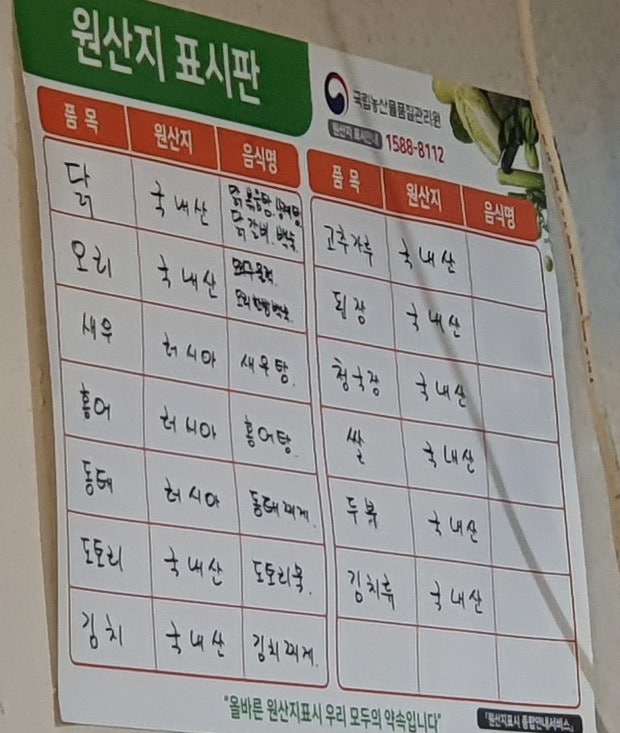 원산지 표시판
국립농산물품질관리원
원산지 표시안내 1588-8112
품 목 원산지 음식명
닭 국내산 닭볶음탕, 닭갈비. 백숙
오리 국내산
새우 러시아 새우탕.
홍어 러시아 홍어탕.
동태 러시아 동태찌게.
도토리 국내산 도토리묵.
김치 국내산 김치찌게.
품 목 원산지 음식명
고추가루 국내산
된장 국내산
청국장 국내산
쌀 국내산
두부 국내산
김치류 국내산
"올바른 원산지표시 우리 모두의 약속입니다"
「원산지표시 통합안내서비스」